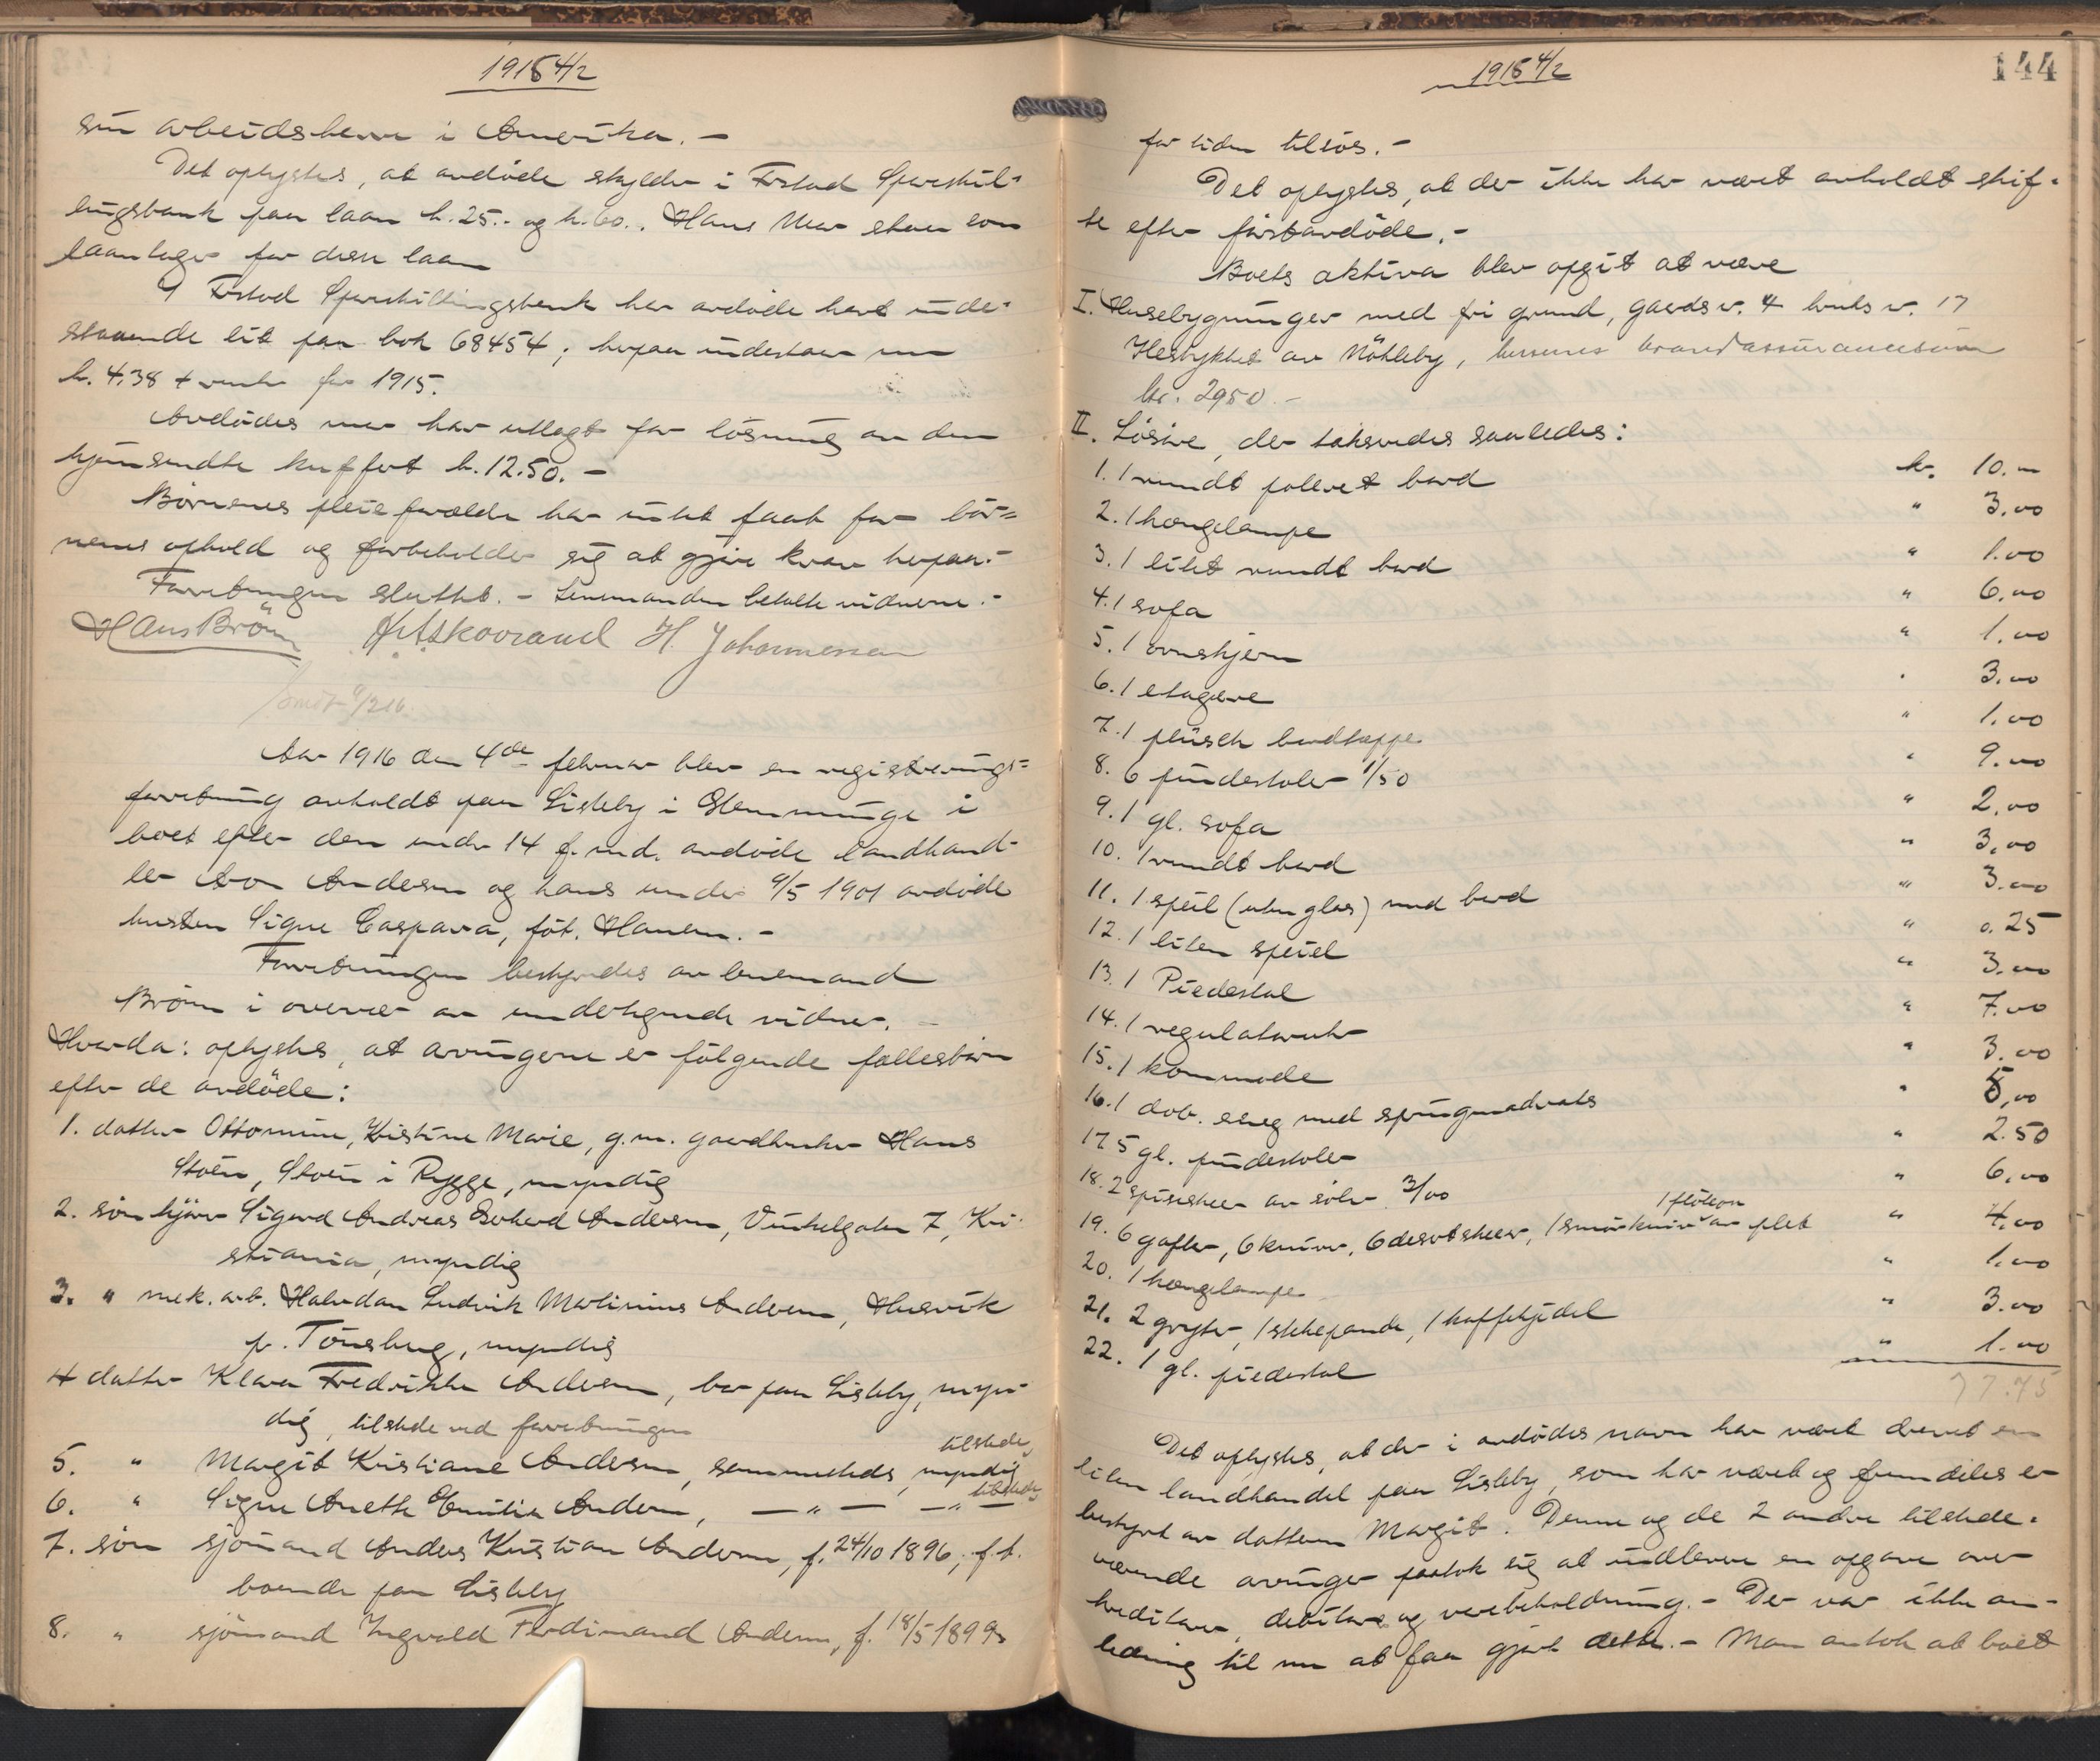 1916 4/2
sin arbeidsherre i Amerika. -
Det oplystes, at avdöde skylder i Fr.stad Spareskil-
lingsbank paa laan k. 25.- og k. 60.. Hans mor staar som
laantager for disse laan
I Fr.stad Spareskillingsbank har avdöde havt inde-
staaende litt paa bok 68454; herpaa indestaar nu
k. 4.38 + renter for 1915.
Avdödes mor har utlagt for lösning av den
hjemsendte kuffert k. 12.50. -
Börnenes pleieforældre har intet faat for bör-
nenes ophold og forbeholder sig at gjöre krav herpaa.-
Forretningen sluttet. - Lensmanden betalte vidnerne.-
Hans Bröm H. Johannessen
Aar 1916 den 4de februar blev en registrerings-
forretning avholdt paa Lisleby i Glemminge i
boet efter den under 14 f. md. avdöde landhand-
ler Aron Andersen og hans under 9/5 1901 avdöde
hustru Signe Caspara, föt. Hansen. -
Forretningen bestyredes av lensmand
Bröm i overvær av undertegnede vidner. -
Hvorda: oplystes, at arvingerne er fölgende fællesbörn
efter de avdöde:
1. datter Ottomine, Kristine Marie, g.m. gaardbruker Hans
Stöen, Stöen i Rygge, myndig
2. sön Sigurd Andreas Andersen, Vinkelgaten 7, Kri-
stiania, myndig
3. " mek. arb. Halvdan Ludvik Martinius Andersen, Husvik
pr. Tönsberg, myndig
4 datter Klara Fredrikke Andersen, bor paa Lisleby, myn-
dig, tilstede ved forretningen
5. " Margit Kristiane Andersen, sammesteds, myndig tilstede
6. " Signe Anette Emilie Andersen, — " — — " — tilstede
7. sön sjömand Anders Kristian Andersen, f. 24/10 1896, f.t.
boende paa Lisleby
8. " sjömand Ingvald Ferdinand Andersen, f. 18/5 1899
1916 4/2
144
for tiden tilsös. -
Det oplystes, at der ikke har været avholdt skif-
te efter förstavdöde. -
Boets aktiva blev opgit at være
I. Husebygninger med fri grund, gaards nr. 4 bruks nr. 17
av Nökleby, husenes brandassurancesum
kr. 2950.-
II. Lösöre, der takseredes saaledes:
1. 1 rundt poleret bord kr. 10.—
2. 1 hængelampe " 3.00
3. 1 litet rundt bord " 1.00
4. 1 sofa " 6.00
5. 1 ovnskjerm " 1.00
6. 1 etagere " 3.00
7. 1 plüsch bordteppe " 1.00
8. 6 pindestoler 1/50 " 9.00
9. 1 gl. sofa " 2.00
10. 1 rundt bord " 3.00
11. 1 speil (uten glas) med bord " 3.00
12. 1 liten speiel " 0.25
13. 1 Piedestal " 3.00
14. 1 regulatorur " 7.00
15. 1 kommode " 3.00
16. 1 dob. seng med springmadrats " 5.00
17. 5 gl. pindestoler " 2.50
18. 2 spiseskeer av sölv 3/00 " 6.00
19. 6 gafler, 6 kniver, 6 desertskeer, 1 smörkniv 1 flöteou av plet " 4.00
20. 1 hængelampe " 1.00
21. 2 gryter, 1 stekepande, 1 kaffekjedel " 3.00
22. 1 gl. piedestal " 1.00
77.75
Det oplystes, at der i avdödes navn har været drevet en
liten landhandel paa Lisleby, som har været og fremdeles er
bestyret av datteren Margit. Denne og de 2 andre tilstede-
værende arvinger paatok sig at indlevere en opgave over
kreditorer, debitorer og varebeholdning. - Der var ikke an-
ledning til nu at faa gjort dette. - Man antok at boet